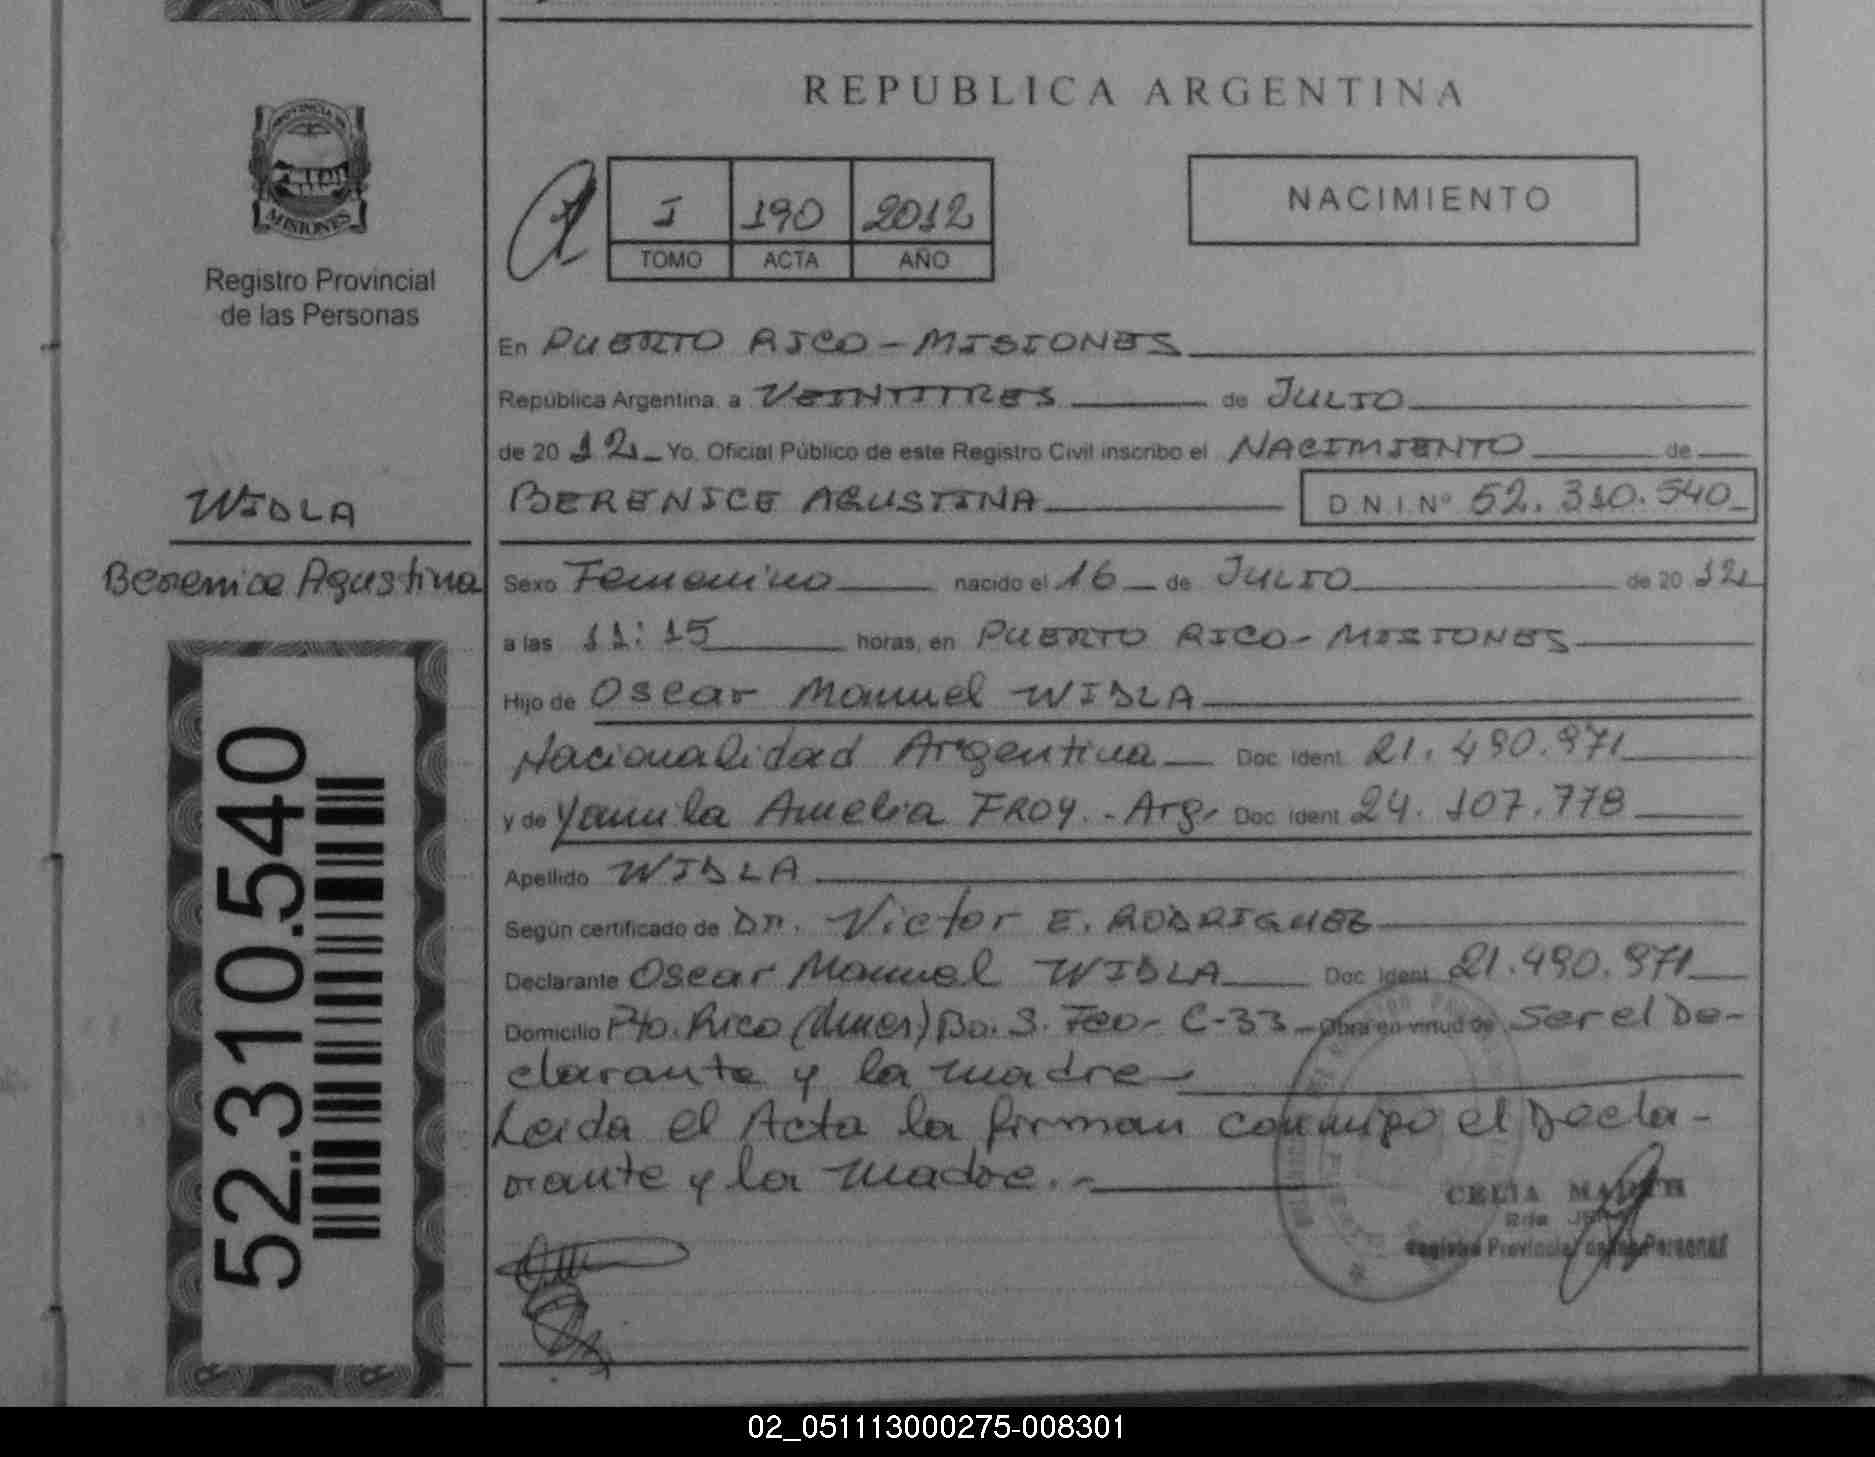 REPUBLICA ARGENTINA
PROVINCIA DE
MISIONES
Registro Provincial
de las Personas
I 190 2012
TOMO ACTA AÑO
NACIMIENTO
En PUERTO RICO - MISIONES
República Argentina, a VEINTITRES de JULIO
de 20 12 Yo, Oficial Público de este Registro Civil inscribo el NACIMIENTO de
BERENICE AGUSTINA D N I Nº 52.310.540
WIDLA
Berenice Agustina
Sexo Femenino nacido el 16 de JULIO de 20 12
a las 11:15 horas, en PUERTO RICO - MISIONES
Hijo de Oscar Manuel WIDLA
Nacionalidad Argentina Doc. Ident. 21.490.971
y de Yamila Amelia FROY. - Arg. Doc. Ident. 24.107.778
Apellido WIDLA
Según certificado de DR. Victor E. RODRIGUEZ
Declarante Oscar Manuel WIDLA Doc. Ident. 21.490.971
Domicilio Pto. Rico (Mnes) Bo. S. Fco - C-33 Obra en virtud de Ser el De-
clarante y la madre
Leida el Acta la firman conmigo el Decla-
rante y la Madre. -
CELIA
Registro Provincial de las Personas
52.310.540
02_051113000275-008301